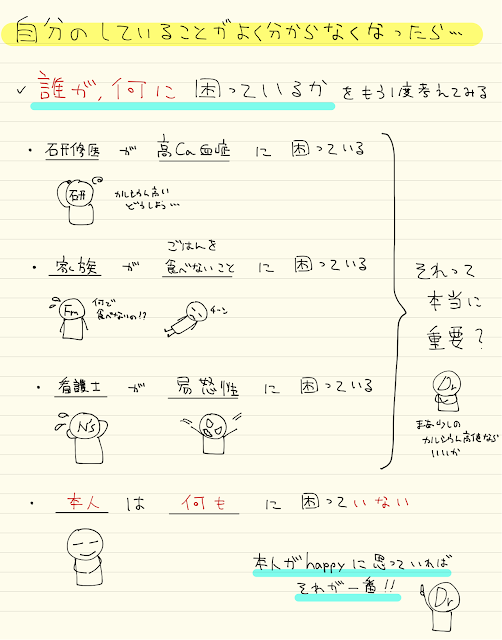 自分のしていることがよく分からなくなったら…
✓ 誰が、何に 困っているか をもう1度考えてみる
・ 研修医 が 高Ca血症 に 困っている
研
カルシウム高い
どうしよう…
・ 家族 が ごはんを食べないこと に 困っている
Fm
何で
食べないの!?
チーン
・ 看護士 が 易怒性 に 困っている
Ns
それって
本当に
重要?
Dr
まあ少しの
カルシウム高値なら
いいか
・ 本人 は 何も に 困っていない
本人がhappyに思っていれば
それが一番!!
Dr